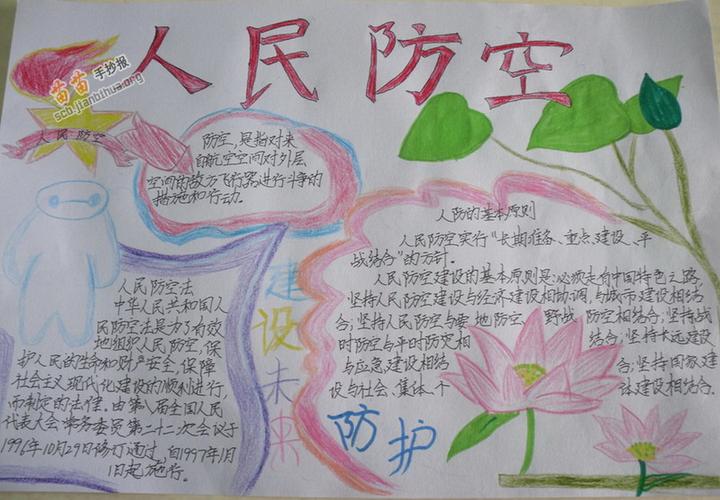 人民防空
苗苗手抄报
scb.jianbihua.org
人民防空
防空,是指对来
自航空空间对外层
空间的敌方飞行器进行斗争的
措施和行动.
人民防空法
中华人民共和国人
民防空法是为了有效
地组织人民防空,保
护人民的生命和财产安全,保障
社会主义现代化建设的顺利进行,
而制定的法律.由第八届全国人民
代表大会常务委员第二十二次会议于
1996年10月29日修订通过,自1997年1月
1日起施行.
建设未来
人防的基本原则
人民防空实行“长期准备、重点建设、平
战结合”的方针.
人民防空建设的基本原则是:必须走有中国特色之路
坚持人民防空建设与经济建设相协调,与城市建设相结
合;坚持人民防空与要地防空、野战防空相结合;坚持战
时防空与平时防灾相结合;坚持长远建设
与应急建设相结合;坚持国家建
设与社会、集体、个体建设相结合.
防护